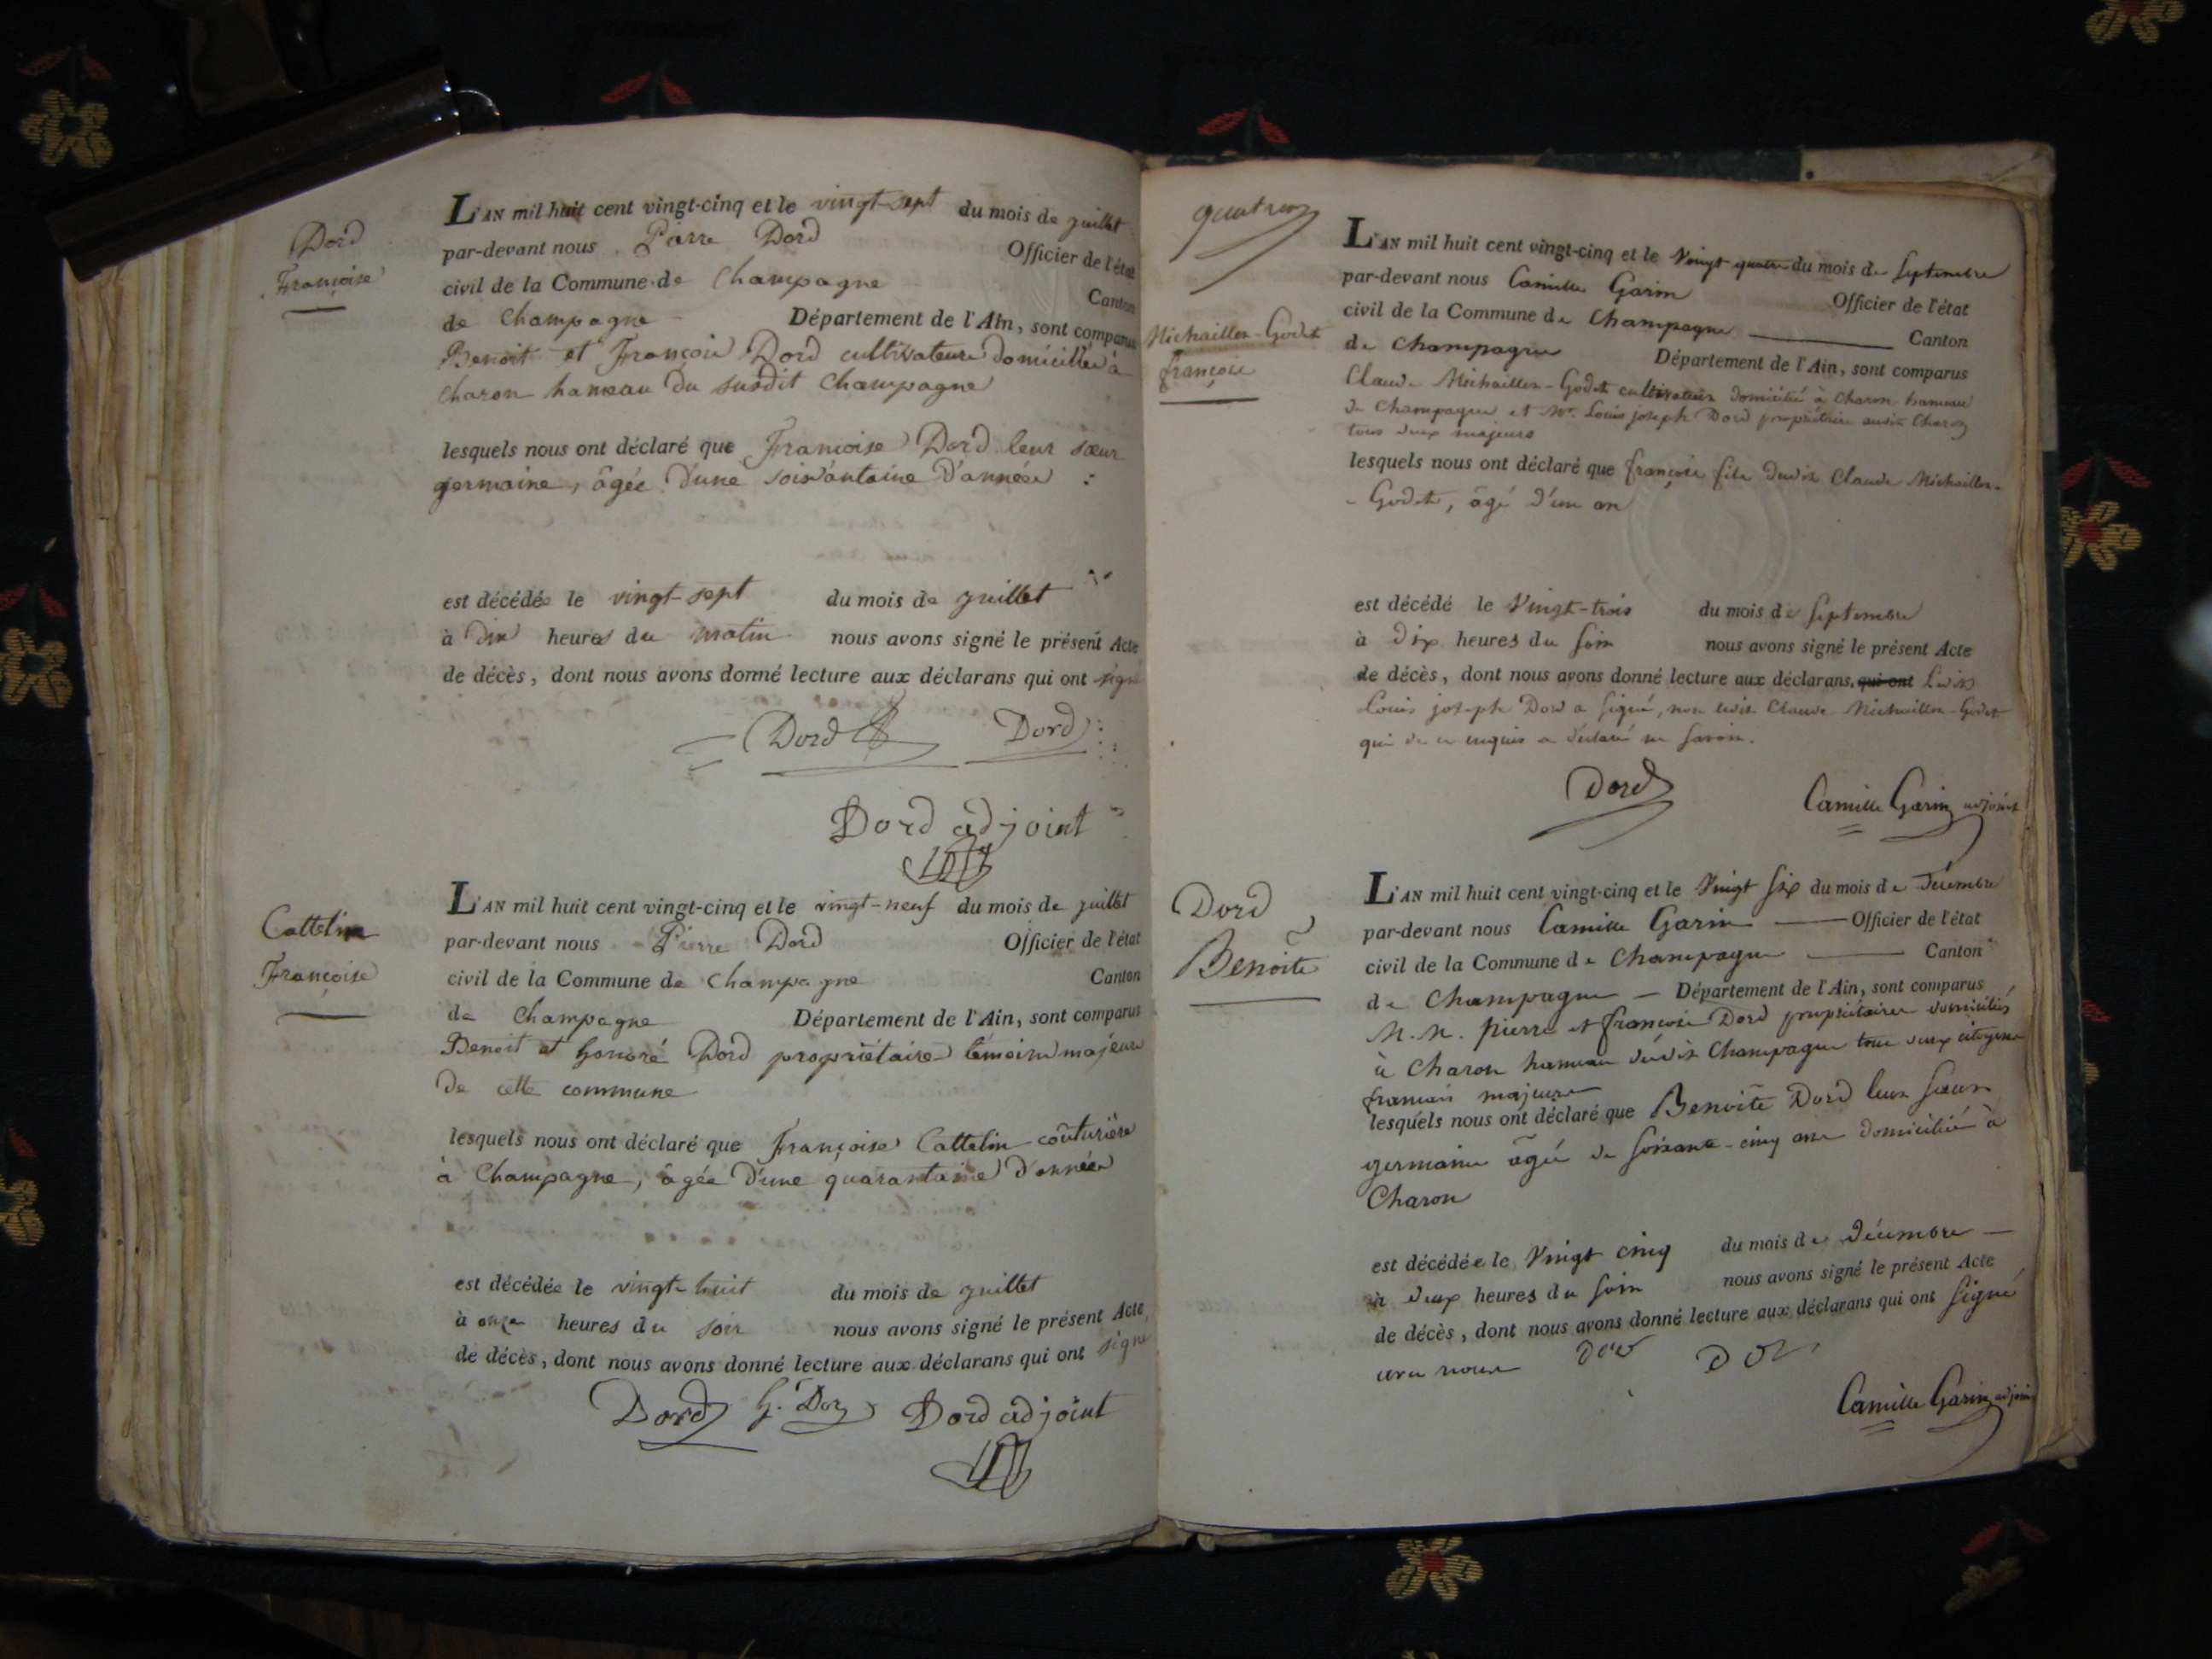 Dord
Françoise
L'AN mil huit cent vingt-cinq et le vingt-sept du mois de juillet
par-devant nous Pierre Dord Officier de l'état
civil de la Commune de Champagne Canton
de Champagne Département de l'Ain, sont comparus
Benoit et François Dord cultivateurs domiciliés à
Charon hameau du susdit Champagne
lesquels nous ont déclaré que Françoise Dord leur sœur
germaine, âgée d'une soixantaine d'années
est décédée le vingt-sept du mois de juillet
à dix heures du matin nous avons signé le présent Acte
de décès, dont nous avons donné lecture aux déclarans qui ont signé
Dord Dord
Dord adjoint
Cattelin
Françoise
L'AN mil huit cent vingt-cinq et le vingt-neuf du mois de juillet
par-devant nous Pierre Dord Officier de l'état
civil de la Commune de Champagne Canton
de Champagne Département de l'Ain, sont comparus
Benoit et honoré Dord propriétaires témoins majeurs
de cette commune
lesquels nous ont déclaré que Françoise Cattelin couturière
à Champagne, âgée d'une quarantaine d'années
est décédée le vingt-huit du mois de juillet
à onze heures du soir nous avons signé le présent Acte
de décès, dont nous avons donné lecture aux déclarans qui ont signé
Dord h. Dord Dord adjoint
Michaillex-Godet
françois
L'AN mil huit cent vingt-cinq et le Vingt quatre du mois de Septembre
par-devant nous Camille Garin Officier de l'état
civil de la Commune de Champagne Canton
de Champagne Département de l'Ain, sont comparus
Claude Michaillex-Godet cultivateur domicilié à Charon hameau
de Champagne et Mr. Louis joseph Dord propriétaire audit Charon
tous deux majeurs
lesquels nous ont déclaré que françois fils dudit Claude Michaillex-
-Godet, âgé d'un an
est décédé le Vingt-trois du mois de Septembre
à dix heures du soir nous avons signé le présent Acte
de décès, dont nous avons donné lecture aux déclarans, qui ont Ledit
Louis joseph Dord a signé, non ledit Claude Michaillex-Godet
qui de ce enquis a déclaré ne savoir.
Dord Camille Garin adjoint
Dord
Benoîte
L'AN mil huit cent vingt-cinq et le Vingt six du mois de Décembre
par-devant nous Camille Garin Officier de l'état
civil de la Commune de Champagne Canton
de Champagne Département de l'Ain, sont comparus
M.M. pierre et françois Dord propriétaires domiciliés
à Charon hameau dudit Champagne tous deux citoyens
francais majeurs
lesquels nous ont déclaré que Benoîte Dord leur sœur
germaine âgée de soixante-cinq ans domiciliée à
Charon
est décédée le Vingt cinq du mois de Décembre
à deux heures du soir nous avons signé le présent Acte
de décès, dont nous avons donné lecture aux déclarans qui ont signé
avec nous Dord Dord
Camille Garin adjoint